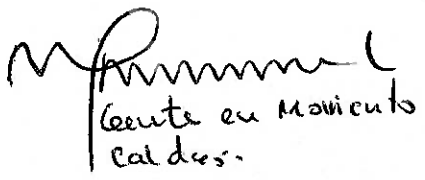 Gente en Movimiento
Caldas.